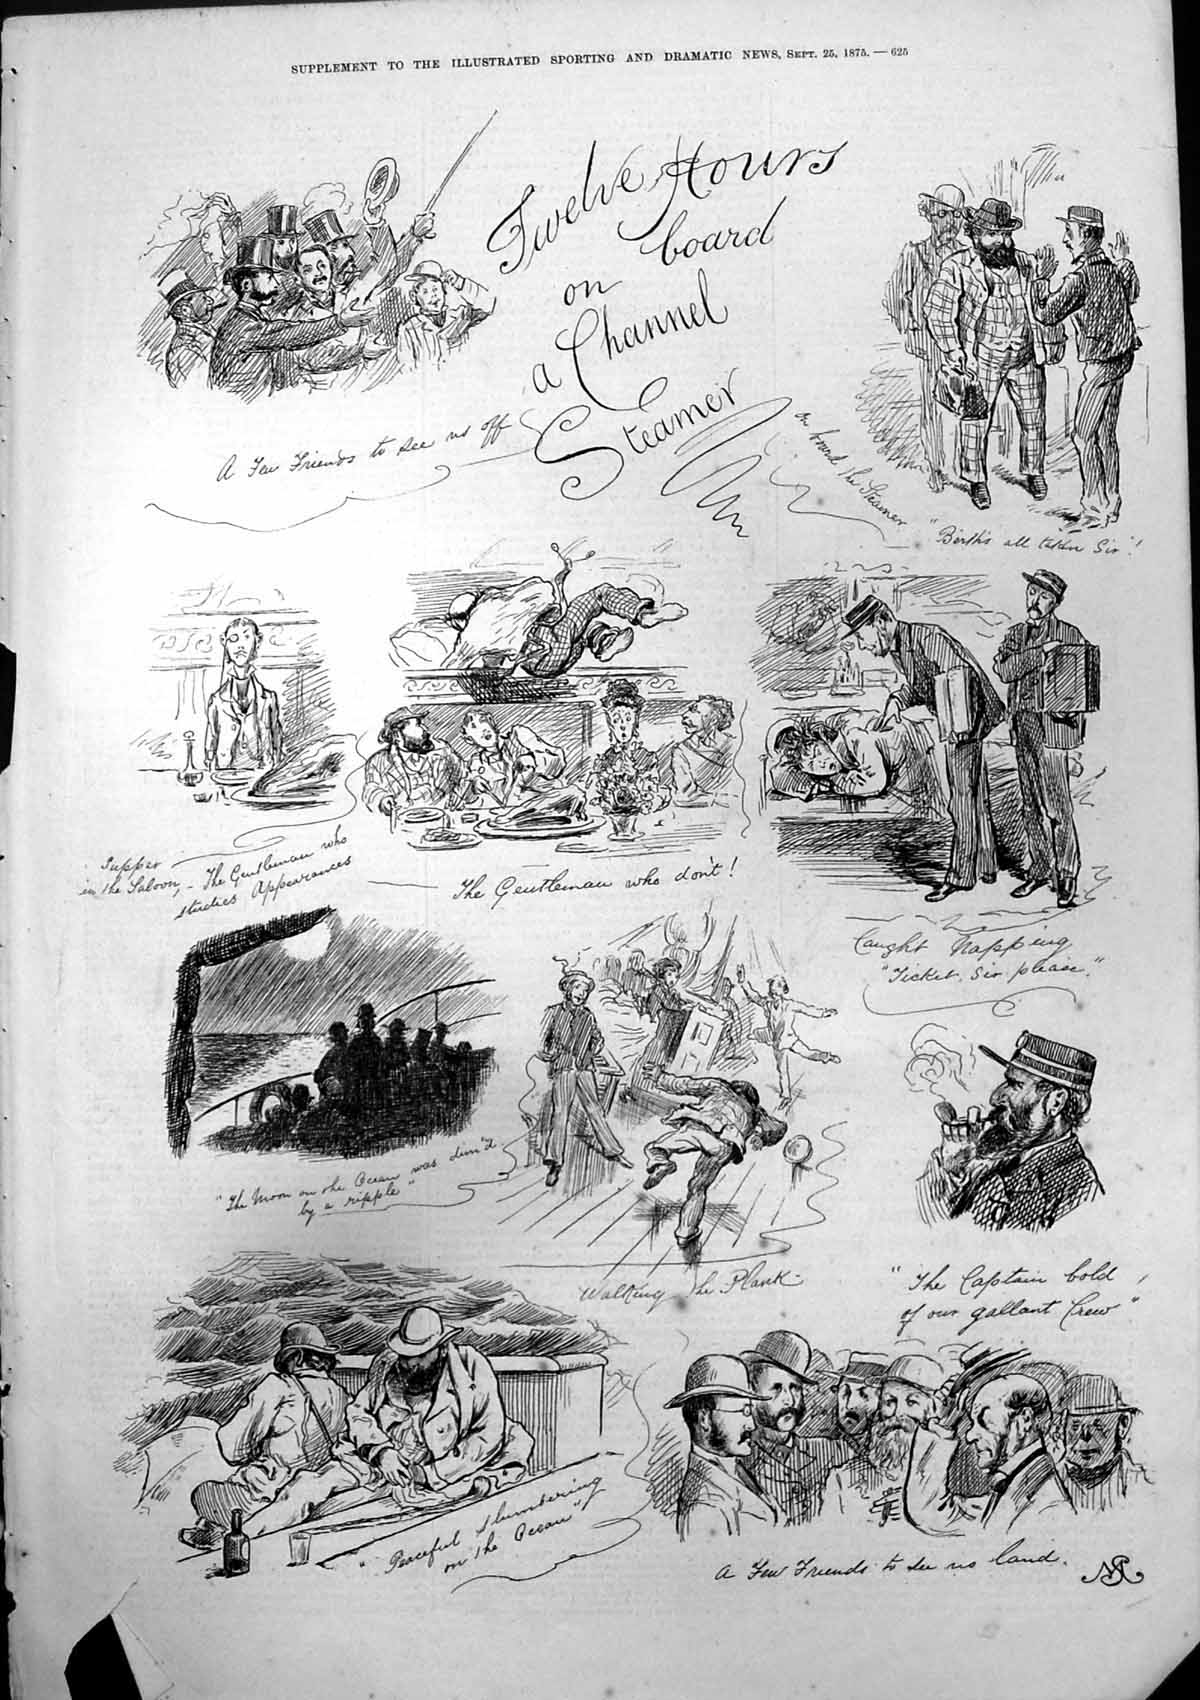 SUPPLEMENT TO THE ILLUSTRATED SPORTING AND DRAMATIC NEWS, SEPT. 25, 1875. — 625
Twelve Hours
on board
a Channel
Steamer
A Few Friends to see us off
on board the Steamer
"Berths all taken Sir"!
Supper
in the Saloon, - The Gentleman who
studies Appearances
The Gentleman who don't!
Caught Napping
"Ticket, Sir please."
"The Moon on the Ocean was dim'd
by a ripple"
Walking the Plank -
"The Captain bold,
of our gallant Crew"
"Peaceful slumbering
on the Ocean"
A Few Friends to see us land.